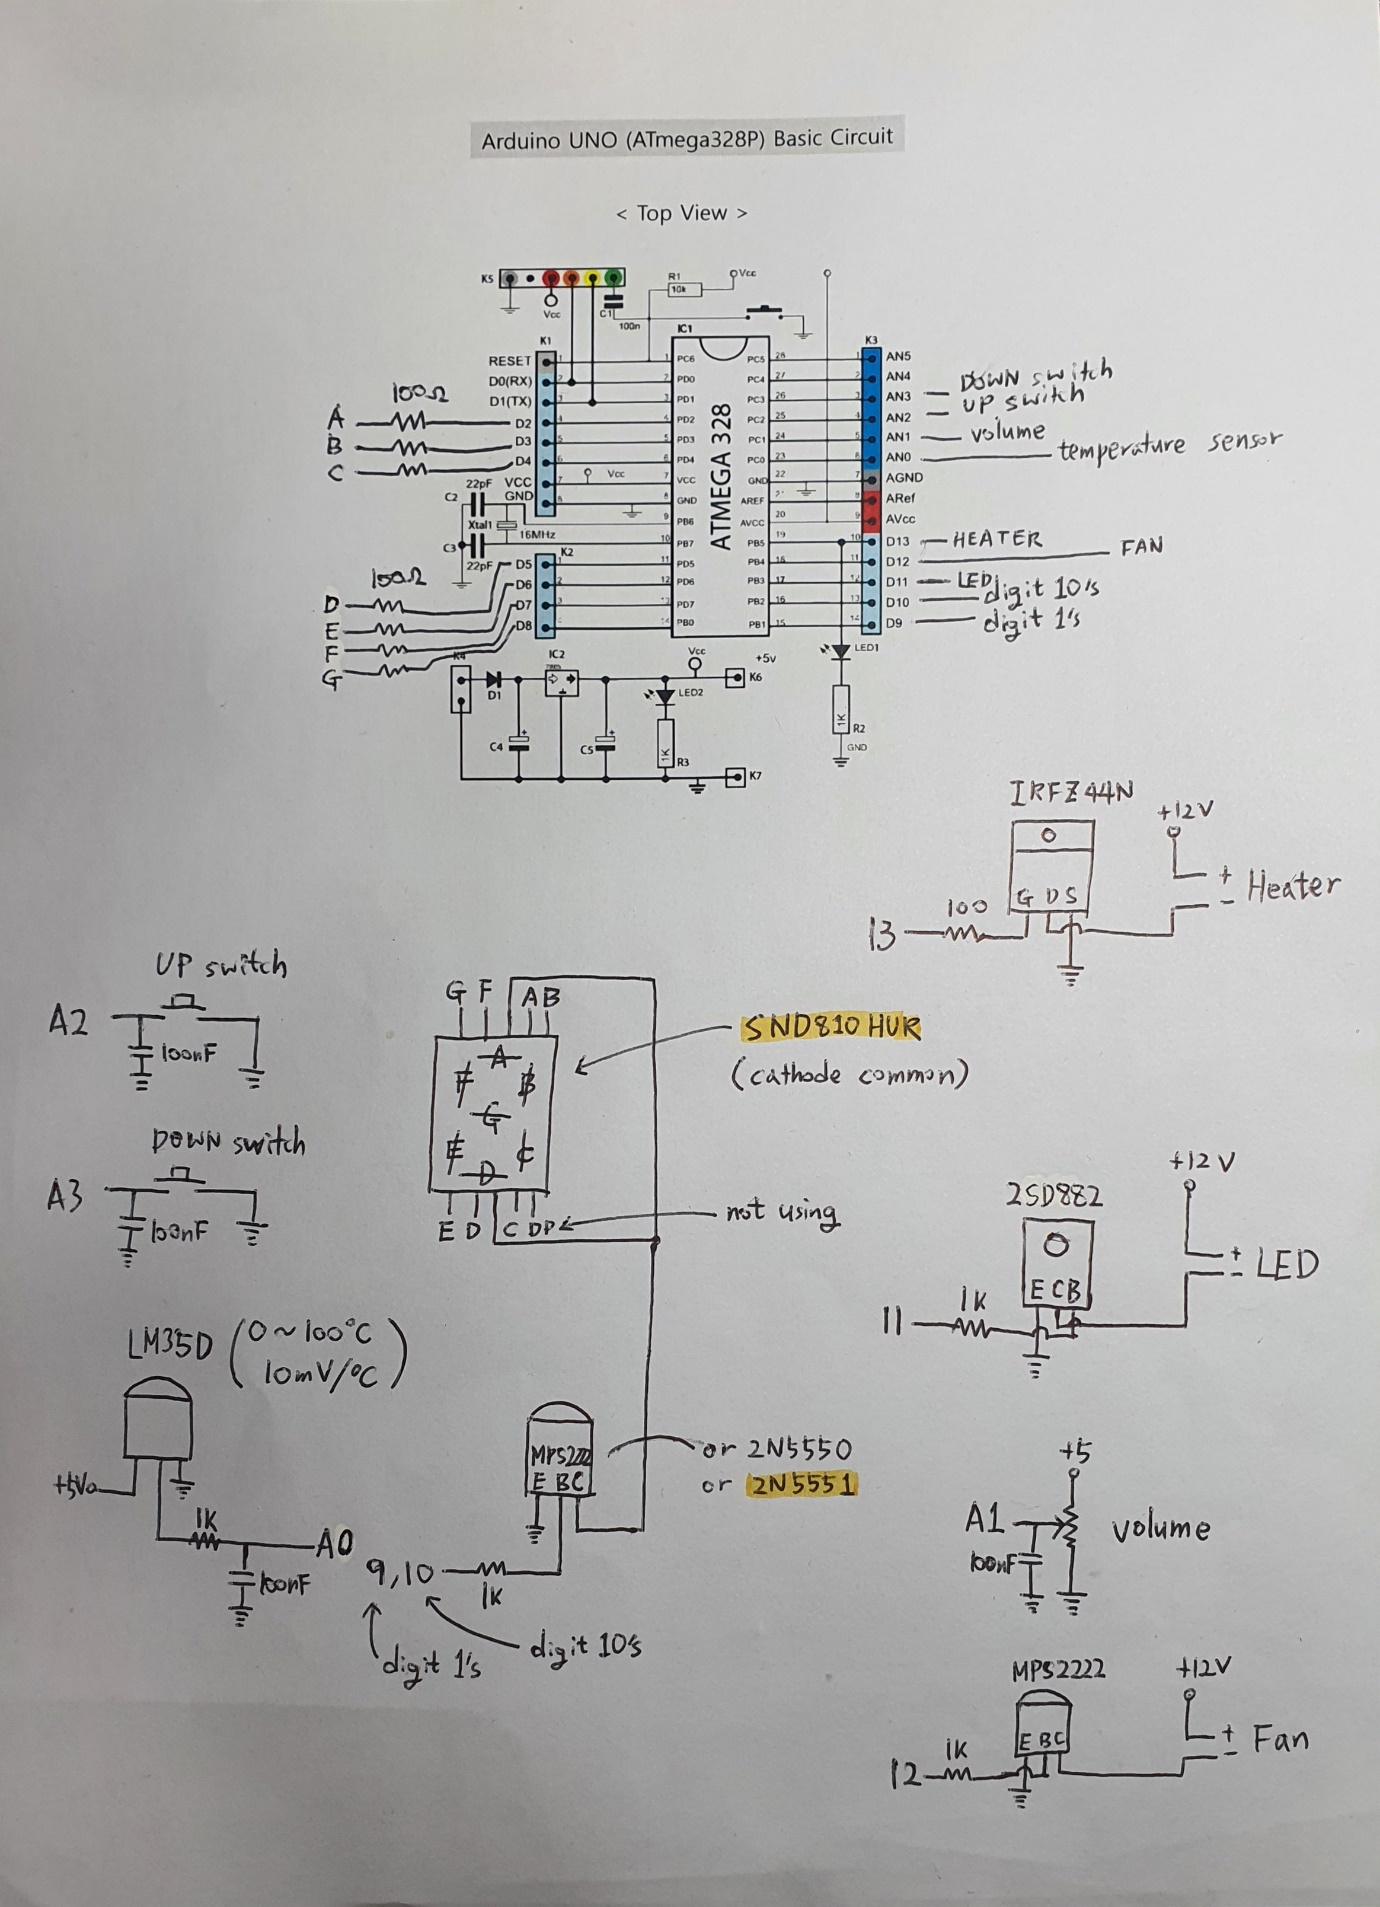 Arduino UNO (ATmega328P) Basic Circuit
< Top View >
K5
Vcc
C1
100n
R1
10k
Vcc
K1
IC1
K3
RESET
D0(RX)
D1(TX)
D2
D3
D4
VCC
GND
Vcc
1
2
3
4
5
6
7
8
9
10
11
12
13
14
PC6
PD0
PD1
PD2
PD3
PD4
VCC
GND
PB6
PB7
PD5
PD6
PD7
PB0
ATMEGA 328
PC5
PC4
PC3
PC2
PC1
PC0
GND
AREF
AVCC
PB5
PB4
PB3
PB2
PB1
28
27
26
25
24
23
22
21
20
19
18
17
16
15
AN5
AN4
AN3 DOWN switch
AN2 UP switch
AN1 volume
AN0 temperature sensor
AGND
ARef
AVcc
D13 HEATER
D12 FAN
D11 LED
D10 digit 10's
D9 digit 1's
100Ω
A
B
C
22pF
C2
Xtal1
16MHz
C3
22pF
K2
100Ω
D D5
E D6
F D7
G D8
K4
D1
IC2
C4
C5
Vcc
+5v
K6
LED2
1K
R3
K7
LED1
1K
R2
GND
IRFZ44N
+12V
G D S
+
- Heater
100
13
UP switch
A2
100nF
DOWN switch
A3
100nF
G F A B
A
F B
G
E C
D
E D C DP
SND810 HUR
(cathode common)
not using
2SD882
+12V
E C B
+
- LED
1K
11
LM35D (0~100°C
10mV/°C)
+5V
1K
A0
100nF
MPS2222
E B C
or 2N5550
or 2N5551
9,10
1K
digit 1's
digit 10's
+5
A1
volume
100nF
MPS2222
+12V
E B C
+
- Fan
1K
12